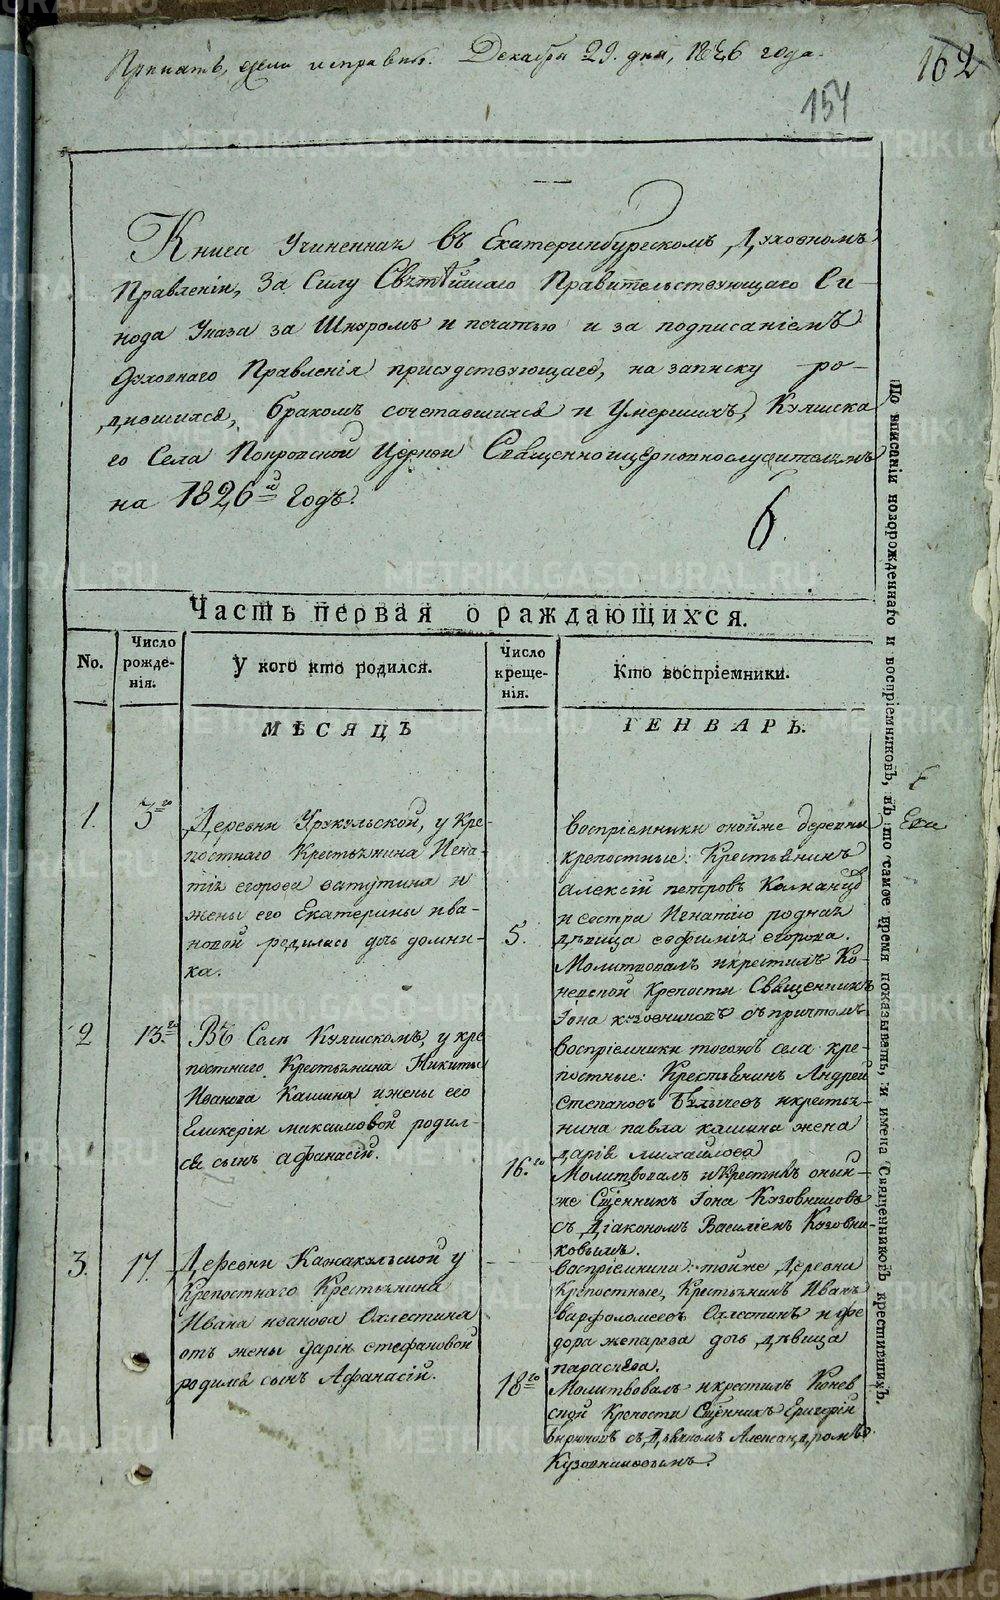 Принять, ежели исправны. Декабря 29. дня, 1826 года.
162
154
Книга Учиненная въ Екатеринбургскомъ Духовномъ
Правленіи, За Силу Святѣйшаго Правительствующаго Си-
нода Указа за Шнуромъ и печатью и за подписаніемъ
Духовнаго Правленія присудствующаго, на записку ро-
дившихся, бракомъ сочетавшихся и Умершихъ, Куяшска
го Села Покровской Церкви Священноицерковнослужителямъ
на 1826й Годъ.
6.
Часть первая о раждающихся.
No.
Число рожде-нія.
У кого кто родился.
Число креще-нія.
Кто воспріемники.
МѢСЯЦЪ
ГЕНВАРЬ.
1.
3го
Деревни Урукульской, у кре-
постнаго Крестьянина Игна-
тія егорова ватутина и
жены его Екатерины ива-
новой родилась дочь домни-
ка.
5.
воспріемники онойже деревни
крепостные: Крестьянинъ
алексій петровъ
и сестра Игнатію родная
дѣвица евфимія егорова.
Молитвовалъ икрестилъ Ко-
невской Крепости Священникъ
Іона кузовниковъ съ причтомъ
2
13.го
Въ Селѣ Куяшскомъ, у кре
постнаго Крестьянина Никиты
Иванова Кашина ижены его
Гликеріи максимовой родил-
ся сынъ афанасій.
16.го
воспріемники тогожъ села кре-
постные: Крестьянинъ Андрей
Степановъ Бѣлычевъ икрестья-
нина павла кашина жена
дарія михайлова
Молитвовалъ икрестилъ оный-
же Сщенникъ Іона Кузовниковъ
съ Діакономъ Василіемъ Кузовни-
ковымъ.
3.
17.
Деревни Кажакульской у
Крепостнаго Крестьянина
Ивана иванова Охлестина
отъ жены дарьи стефановой
родился сынъ Афанасій.
18го
воспріемники: тойже Деревни
Крепостные, Крестьянинъ Иванъ
варфоломеевъ Охлестинъ и фе
дора дочь дѣвица
параскева.
Молитвовалъ икрестилъ Конев
ской Крепости Сщенникъ Григорій
Бирюковъ съ Дьячкомъ Александромъ
Кузовниковымъ.
По вписаніи новорожденнаго и воспріемниковъ, въ то самое время показывать, и имена Священниковъ крестившихъ.
METRIKI.GASO-URAL.RU